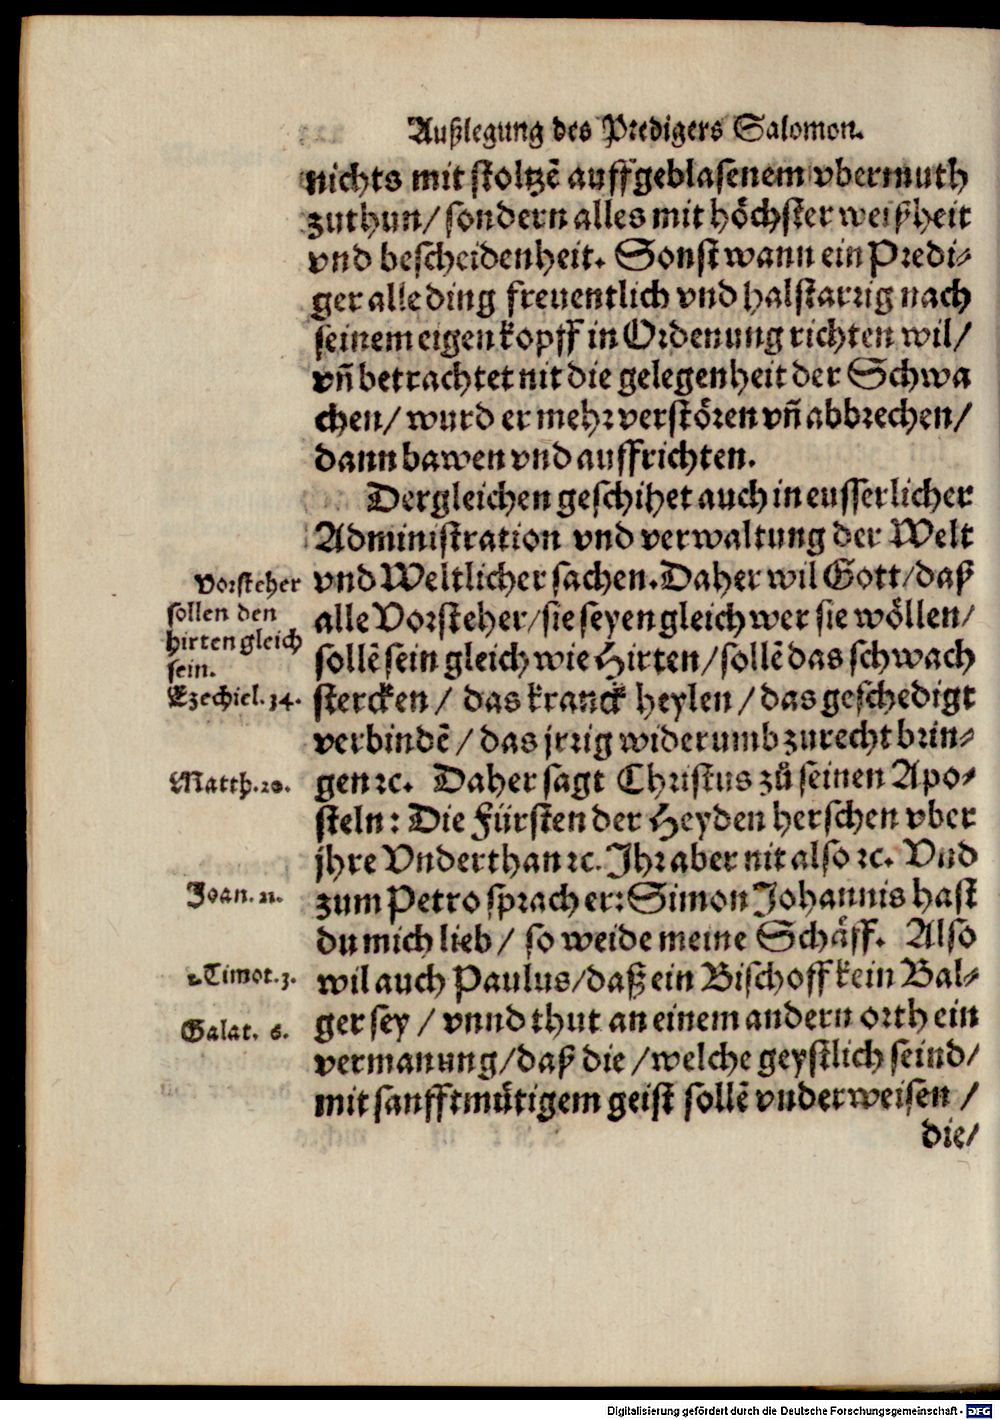 Außlegung des Predigers Salomon.
nichts mit stoltzē auffgeblasenem vbermuth
zuthun/ sondern alles mit höchster weißheit
vnd bescheidenheit. Sonst wann ein Predi-
ger alle ding freuentlich vnd halstarrig nach
seinem eigen kopff in Ordenung richten wil/
vñ betrachtet nit die gelegenheit der Schwa
chen/ wurd er mehr verstören vñ abbrechen/
dann bawen vnd auffrichten.
Dergleichen geschihet auch in eusserlicher
Administration vnd verwaltung der Welt
vnd Weltlicher sachen. Daher wil Gott/ daß
alle Vorsteher/ sie seyen gleich wer sie wöllen/
sollē sein gleich wie Hirten/ sollē das schwach
stercken/ das kranck heylen/ das geschedigt
verbindē/ das jrrig widerumb zurecht brin-
gen ꝛc. Daher sagt Christus zů seinen Apo-
steln: Die Fürsten der Heyden herschen vber
jhre Vnderthan ꝛc. Ihr aber nit also ꝛc. Vnd
zum Petro sprach er: Simon Johannis hast
du mich lieb/ so weide meine Schäff. Also
wil auch Paulus/ daß ein Bischoff kein Bal-
ger sey/ vnnd thut an einem andern orth ein
vermanung/ daß die/ welche geystlich seind/
mit sanfftmütigem geist sollē vnderweisen/
die/
Vorsteher
sollen den
hirten gleich
sein.
Ezechiel. 34.
Matth. 20.
Joan. 21.
1.Timot. 3.
Galat. 6.
Digitalisierung gefördert durch die Deutsche Forschungsgemeinschaft - DFG